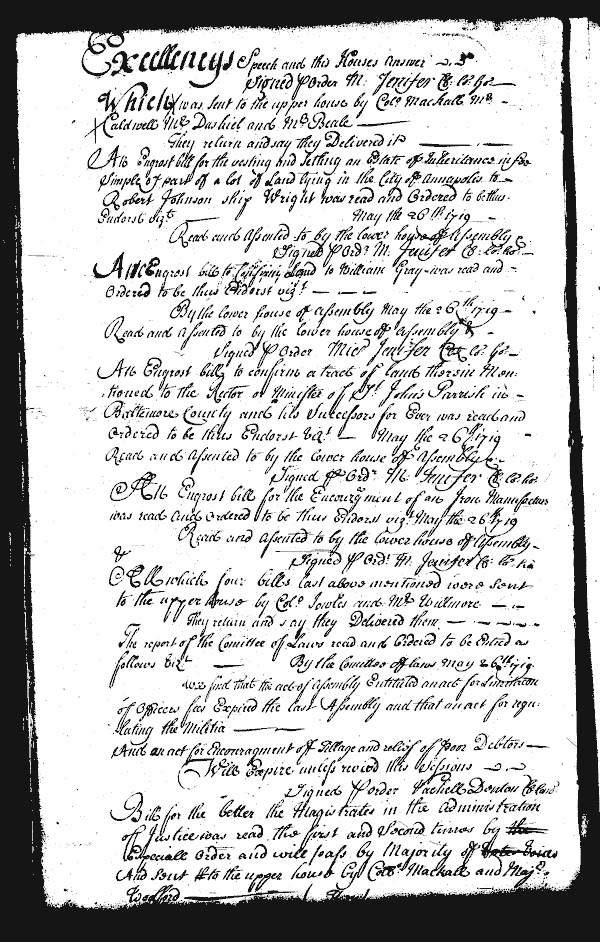 68
Excellencys Speech and this Houses Answer
Signed P Order M. Jenifer Cl. lo. ho.
Which was sent to the upper house by Colo. Mackall Mr.
Caldwell Mr. Dashiel and Mr. Beale
They return and say they Delivered it
An Engrost bill for the vesting and Setling an Estate of Inheritance in fee
Simple of part of a lot of Land lying in the City of Annapolis to
Robert Johnson ship Wright was read and Ordered to be thus
Endorst vizt. May the 26th. 1719
Read and Assented to by the lower house of Assembly
Signed P Ordr. M. Jenifer Cl. lo. ho.
An Engrost bill to Land to William Gray was read and
Ordered to be thus Endorst vizt.
By the lower house of assembly May the 26th 1719
Read and assented to by the lower house of assembly &
Signed P Order Micl. Jenifer Cl. lo. ho.
An Engrost bill to confirm a tract of land therein Men
tioned to the Rector or Minister of St. Johns Parrish in
Baltimore County and his Successors for Ever was read and
Ordered to be thus Endorst vizt. May the 26th 1719
Read and assented to by the lower house of Assembly
Signed P Ordr. M. Jenifer Cl. lo. ho.
An Engrost bill for the Encouragment of an Iron Manufacture
was read and ordered to be thus Endorst vizt. May the 26th 1719
Read and assented to by the lower house of Assembly
&
Signed P Ordr. M. Jenifer Cl. lo. ho.
All which four bills last above mentioned were sent
to the upper house by Colo. Jowles and Mr. Willmore
They return and say they Delivered them
The report of the Comittee of Laws read and Ordered to be Entred as
follows vizt. By the Comittee of laws May 26th. 1719
We find that the act of Assembly Entituled an act for Limitation
of Officers fees Expired the last Assembly and that an act for regu
lating the Militia
And an act for Encouragment of Tillage and relief of poor Debtors
Will Expire unless revivd this Sessions
Signed P order Vachell Denton
Bill for the better the Magistrates in the administration
of Justice was read the first and Second times by the
Especiall Order and will pass by Majority of
And sent to the upper house by Colo. Mackall and Majr.